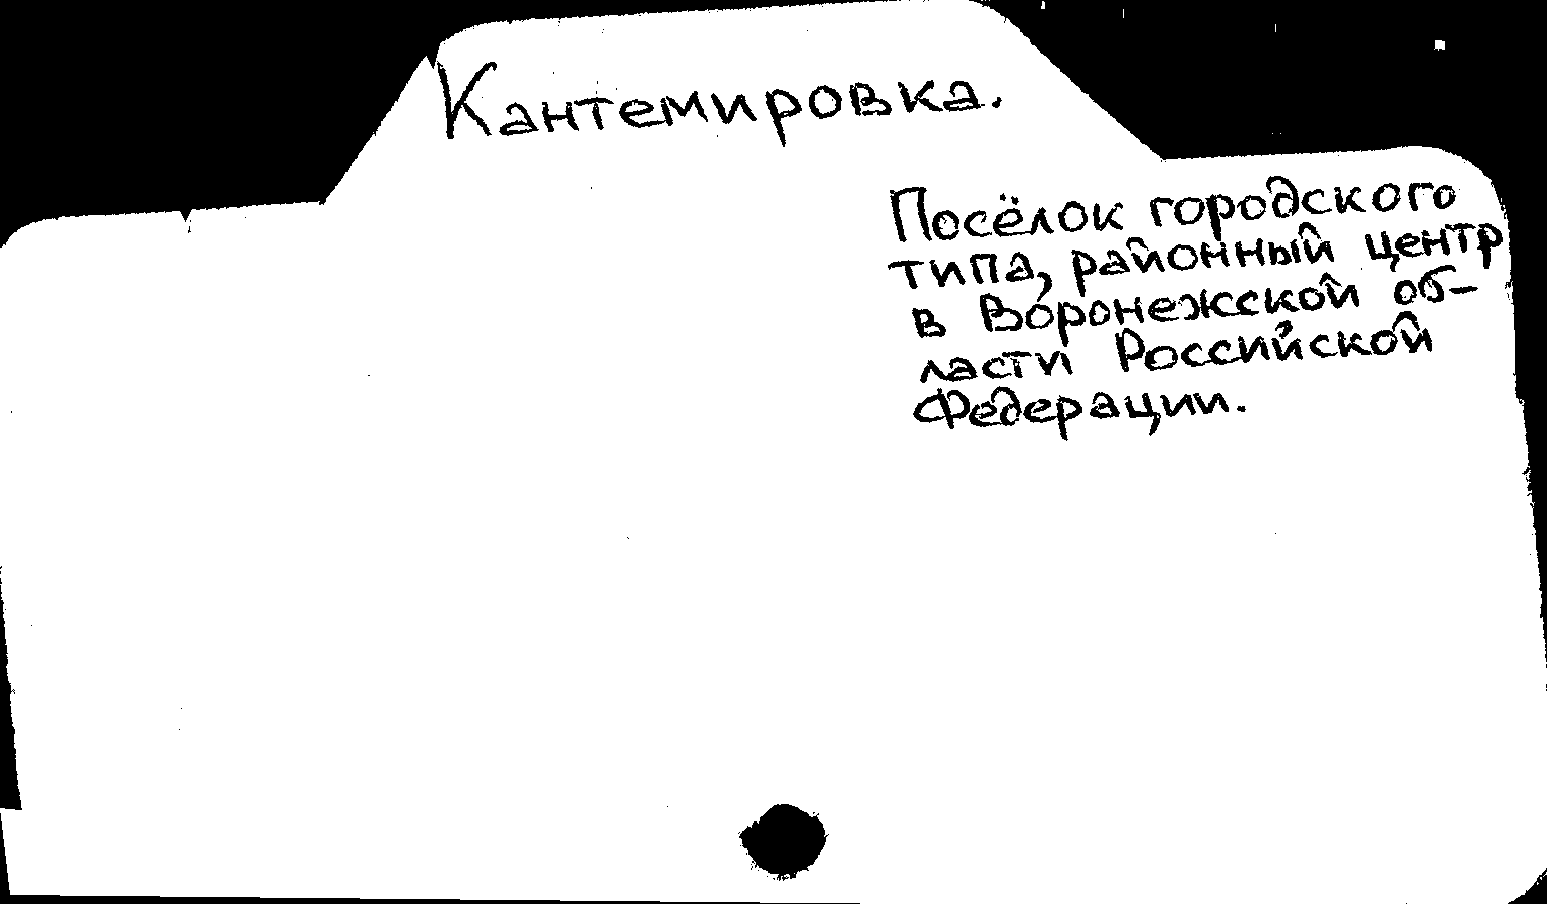 Кантемировка.
Посёлок городского
типа, районный центр
в Воронежской об-
ласти Российской
Федерации.